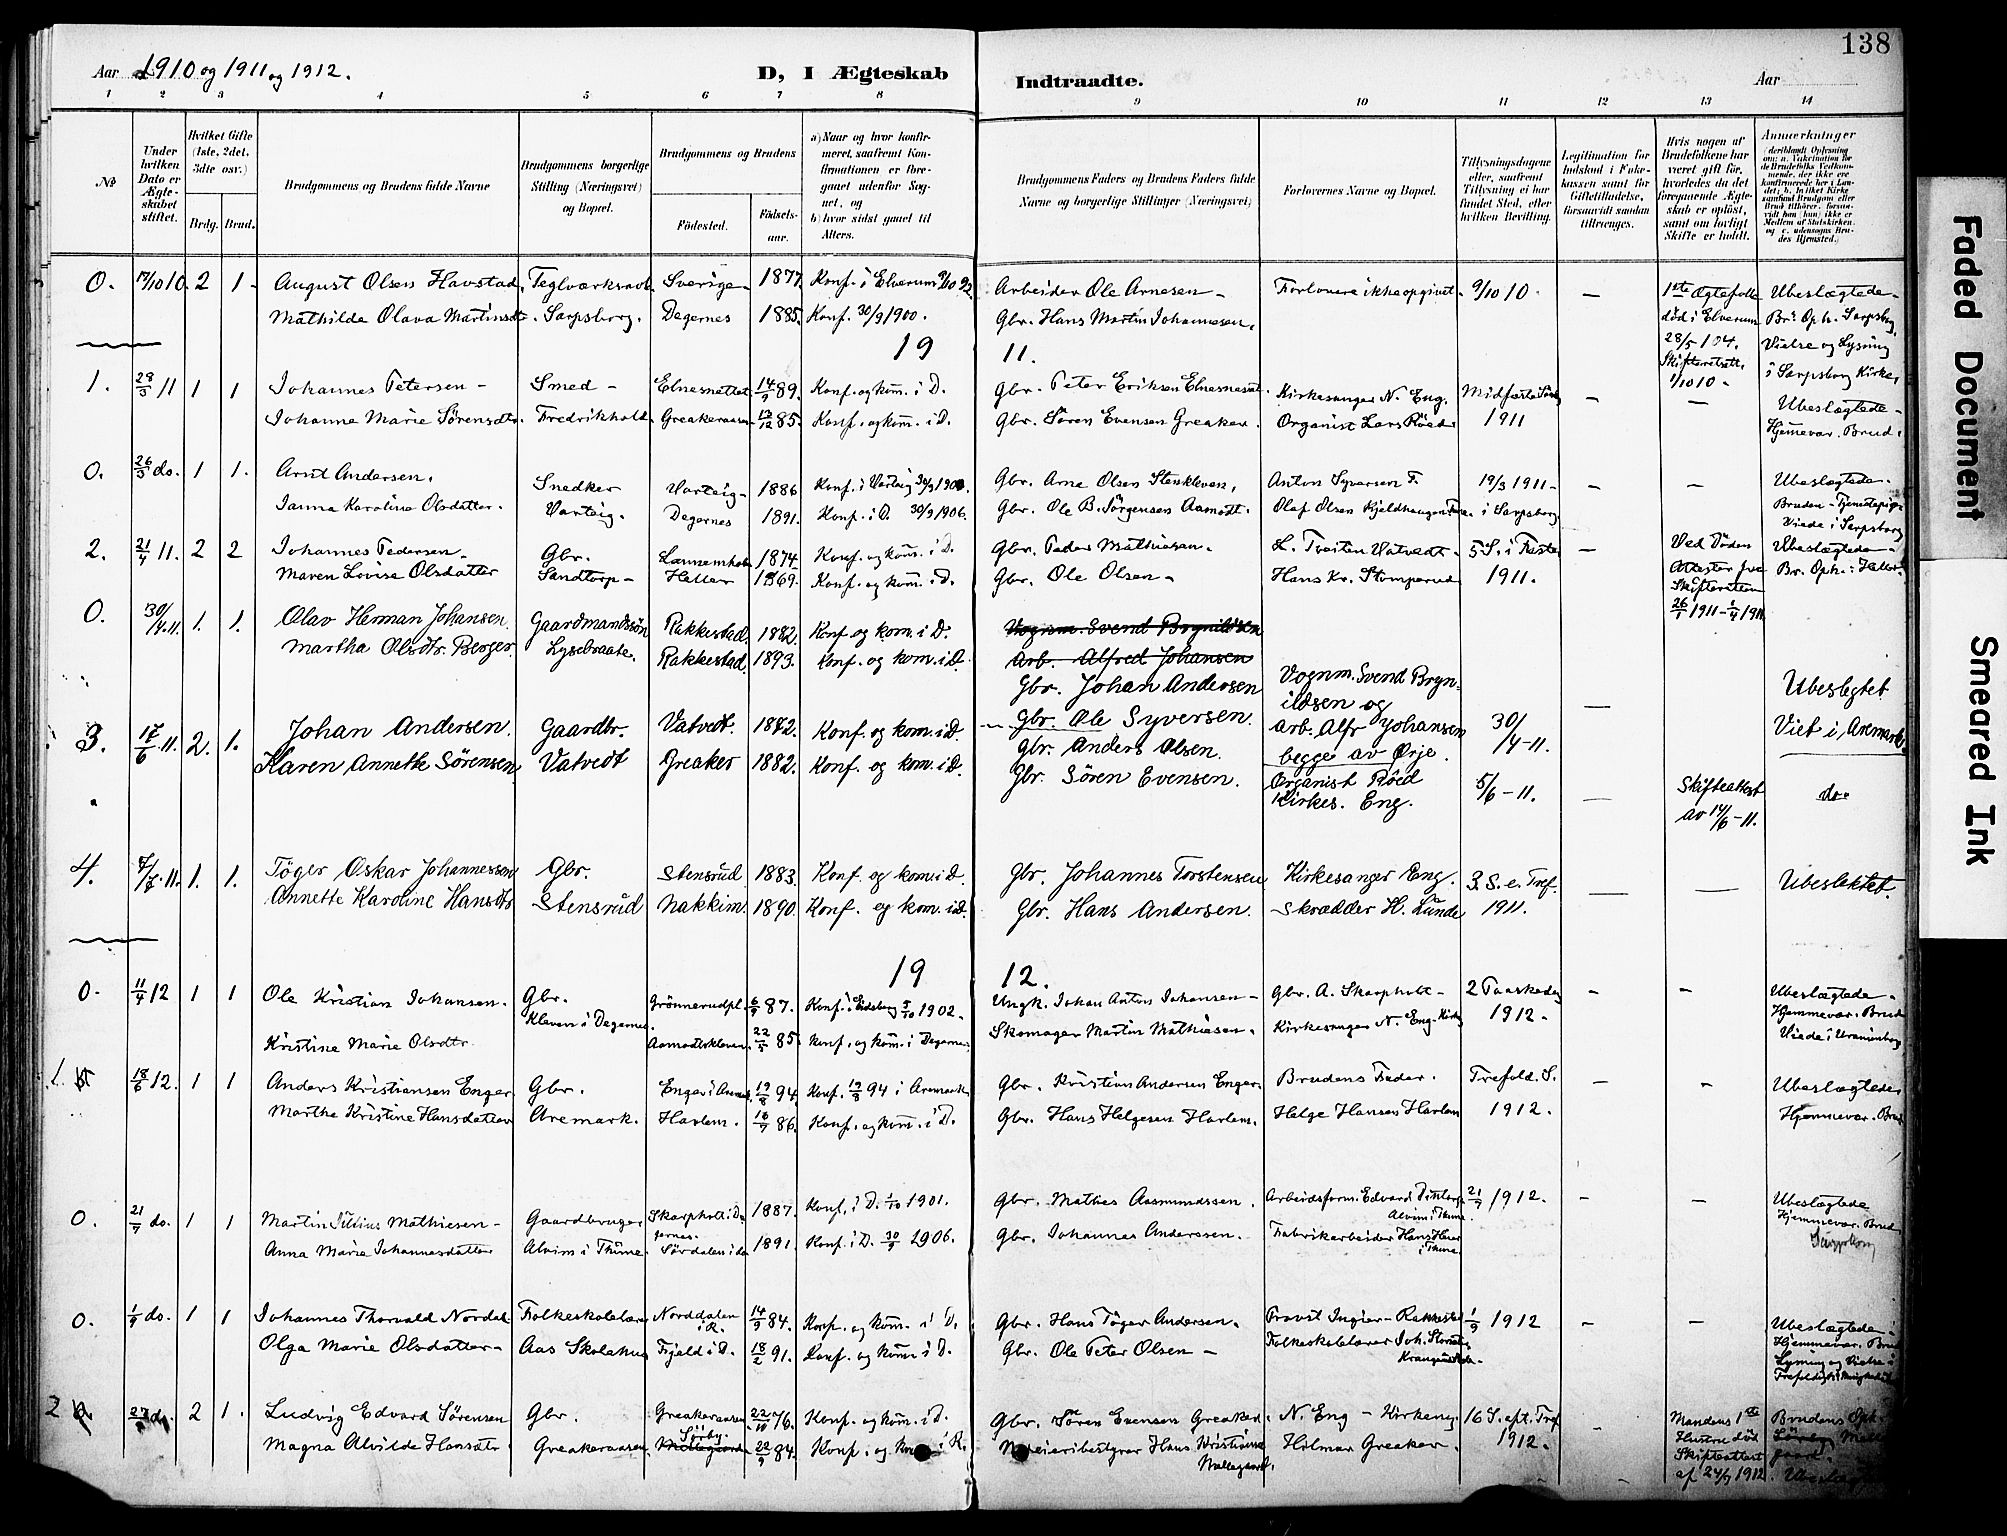 138
Aar 1910 og 1911 og 1912.
D, I Ægteskab
Indtraadte.
Aar
1 2 3 4 5 6 7 8 9 10 11 12 13 14
№
Under hvilken Dato er Ægteskabet stiftet.
Hvilket Gifte (1ste, 2det, 3die osv.)
Brdg. Brud.
Brudgommens og Brudens fulde Navne
Brudgommens borgerlige Stilling (Næringsvei) og Bopæl.
Brudgommens og Brudens
Födested.
Födselsaar.
a) Naar og hvor konfirmeret, saafremt Konfirmationen er foregaaet udenfor Sognet, og
b) hvor sidst gaaet til Alters.
Brudgommens Faders og Brudens Faders fulde Navne og borgerlige Stillinger (Næringsvei)
Forlovernes Navne og Bopæl.
Tillysningsdagene eller, saafremt Tillysning ei har fundet Sted, efter hvilken Bevilling.
Legitimation for Indskud i Enkekassen samt for Giftetilladelse, forsaavidt saadan tiltrænges.
Hvis nogen af Brudefolkene har været gift för, hvorledes da det foregaaende Ægteskab er oplöst, samt om lovligt Skifte er holdt.
Anmærkninger
0. 17/10 10. 2 1 August Olsen Havstad, Teglværksarb. Sverige 1877. Konf. i Elverum 9/10 92. Arbeider Ole Arnesen Forlovere ikke opgivet. 9/10 10 — 1ste Ægtefolle Ubeslægtede
Mathilde Olava Martinsdtr. Sarpsborg. Degernes 1885. Konf. 30/9 1900. Gbr. Hans Martin Johannesen, død i Elverum Br. Oph. Sarpsborg,
28/5 104. Vielse og Lysning
1/10 10 i Sarpsborg Kirke,
19 11.
1. 28/3 11 1 1 Johannes Petersen Smed Elnesnettet 14/9 89. Konf. og kom. i D. Gbr. Peter Eriksen Kirkesanger N. Eng. Midfaste Sönd — — Ubeslægtede
Johanne Marie Sørensdtr. Fredrikhold. Greakeraasen 13/12 85. Konf. og kom. i D. Gbr. Søren Evensen Greaker Organist Lars Röed 1911 Hjemmevær. Brud.
0. 26/3 do. 1 1. Arnt Andersen. Snedker Varteig 1886 Konf. i Varteig Gbr. Arne Olsen Stenkleven, Anton Syversen F. 19/3 1911 — — Ubeslægtede.
Janna Karoline Olsdatter. Varteig. Degernes 1891. Konf. i D. 30/9 1906. Gbr. Ole B. Jörgensen Aamodt. Olaf Olsen i Sarpsborg Bruden
Viede i Sarpsborg
2. 21/4 11. 2 2 Johannes Pedersen Gbr. 1874 Konf. og kom. i D. Gbr. Peder Mathiasen. L. Tveiten Vatvedt. 5 S. i Faste — Ved Döden Ubeslægtede
Maren Lovise Olsdatter Sandtorp Heller 1869. Konf. og kom. i D. Gbr. Ole Olsen Hans Kr. Stomperud 1911. Br. Oph.: Heller
26/1 1911 — 1/4 1911
0. 30/4.11. 1. 1. Olav Herman Johansen. Gaardmandssön Rakkestad. 1882. Konf. og kom. i D. Vognm. Svend Brynildsen
Martha Olsdtr. Berger. Lysebraate. Rakkestad 1893. Konf. og kom. i D. Arb. Alfred Johansen
Gbr. Johan Andersen Vognm. Svend Brynildsen og Ubeslegtet
Gbr. Ole Syversen. arb. Alfr Johansen 30/4-11. — Viet i Aremark.
begge av Ørje.
3. 17/6 11. 2. 1. Johan Andersen. Gaardbr. Vatvedt. 1872. Konf. og kom. i D. Gbr. Anders Olsen. Organist Röed 5/6-11. — Skifteattest do.
Karen Annette Sørensen Vatvedt Greaker 1882. Konf. og kom. i D. Gbr. Søren Evensen. Kirkes. Eng. av 14/6-11.
4. 7/7.11. 1. 1. Töger Oskar Johannessen Gbr. Stensrud 1883. Konf. og kom. i D. Gbr. Johannes Torstensen Kirkesanger Eng. 3. S. e. Tref. — — Ubeslektet.
Annette Karoline Hansdtr Stensrud Nakkim 1890. Konf. og kom. i D. Gbr. Hans Andersen. Skrædder H. Lunde 1911.
19 12.
0. 11/4 12 1 1 Ole Kristian Johansen. Gbr. Grönnerudpl. 6/9 87. Konf. i Eidsberg 5/10 1902. Ungk. Johan Anton Johansen Gbr. A. Skarpholt 2 Paaskedag — — Ubeslægtede.
Kristine Marie Olsdtr. Kleven i Degernes. Aamodtskleven 22/5 85. Konf. og kom. i Degernes Skomager Martin Mathiasen. Kirkesanger N. Eng. 1912. Hjemmevær. Brud
Viede i Uranienborg
1. 18/6 12. 1 1 Anders Kristiansen Enger Gbr. Enger i Aremark 19/8 94 Konf. 19/8 94 i Aremark Gbr. Kristian Andersen Enger. Brudens Fader. Trefold. S. — — Ubeslægtede
Marthe Kristine Hansdatter Aremark. Harlem. 16/7 86. Konf. og kom. i D. Gbr. Hans Helgesen Harlem. Helge Hansen Harlem 1912. Hjemmevær. Brud
0. 21/7 do. 1 1 Martin Julius Mathiesen Gaardbruger Skarpholt i Degernes. 1887. Konf. i D. 1/10 1901. Gbr. Mathes Aasmundssen. Arbeidsform. Edvard Alvim i Thune. 21/7 1912. — — Ubeslægtede
Anna Marie Johannesdatter Alvim i Thune. Sørdalen i do 1891. Konf. i D. 30/9 1906. Gbr. Johannes Anderssen. Fabrikarbeider Hans i Thune Hjemmevær. Brud
Sarpsborg
0. 1/9 do. 1 1 Johannes Thorvald Nordal Folkeskolelærer Norddalen i R. 14/9 84. Konf. og kom. i D. Gbr. Hans Töger Andersen. Provst Ingier Rakkestad 1/9 1912 — — Ubeslægtede.
Olga Marie Olsdatter Aas Skolehus Fjeld i D. 18/2 91. Konf. og kom. i D. Gbr. Ole Peter Olsen Folkeskolelærer Joh. Hjemmevær. Brud
Lysning og Vielse i
2 27/9 do. 2 1. Ludvig Edvard Sørensen Gbr. Greakeraasen 22/10 76. Konf. og kom. i D. Gbr. Søren Evensen Greaker. N. Eng Kirkesng. 16 S. eft. Tref — Mandens 1ste Brudens Oph.
Magna Alvilde Hansdtr. Greakeraasen Sörby 22/9 84. Konf. og kom. i R. Meieribestyrer Hans Kristian Møllegaard. Hilmar Greaker. 1912. Hustru död
Skifteattest
af 24/9 1912. Ubeslægt
Faded Document
Smeared Ink